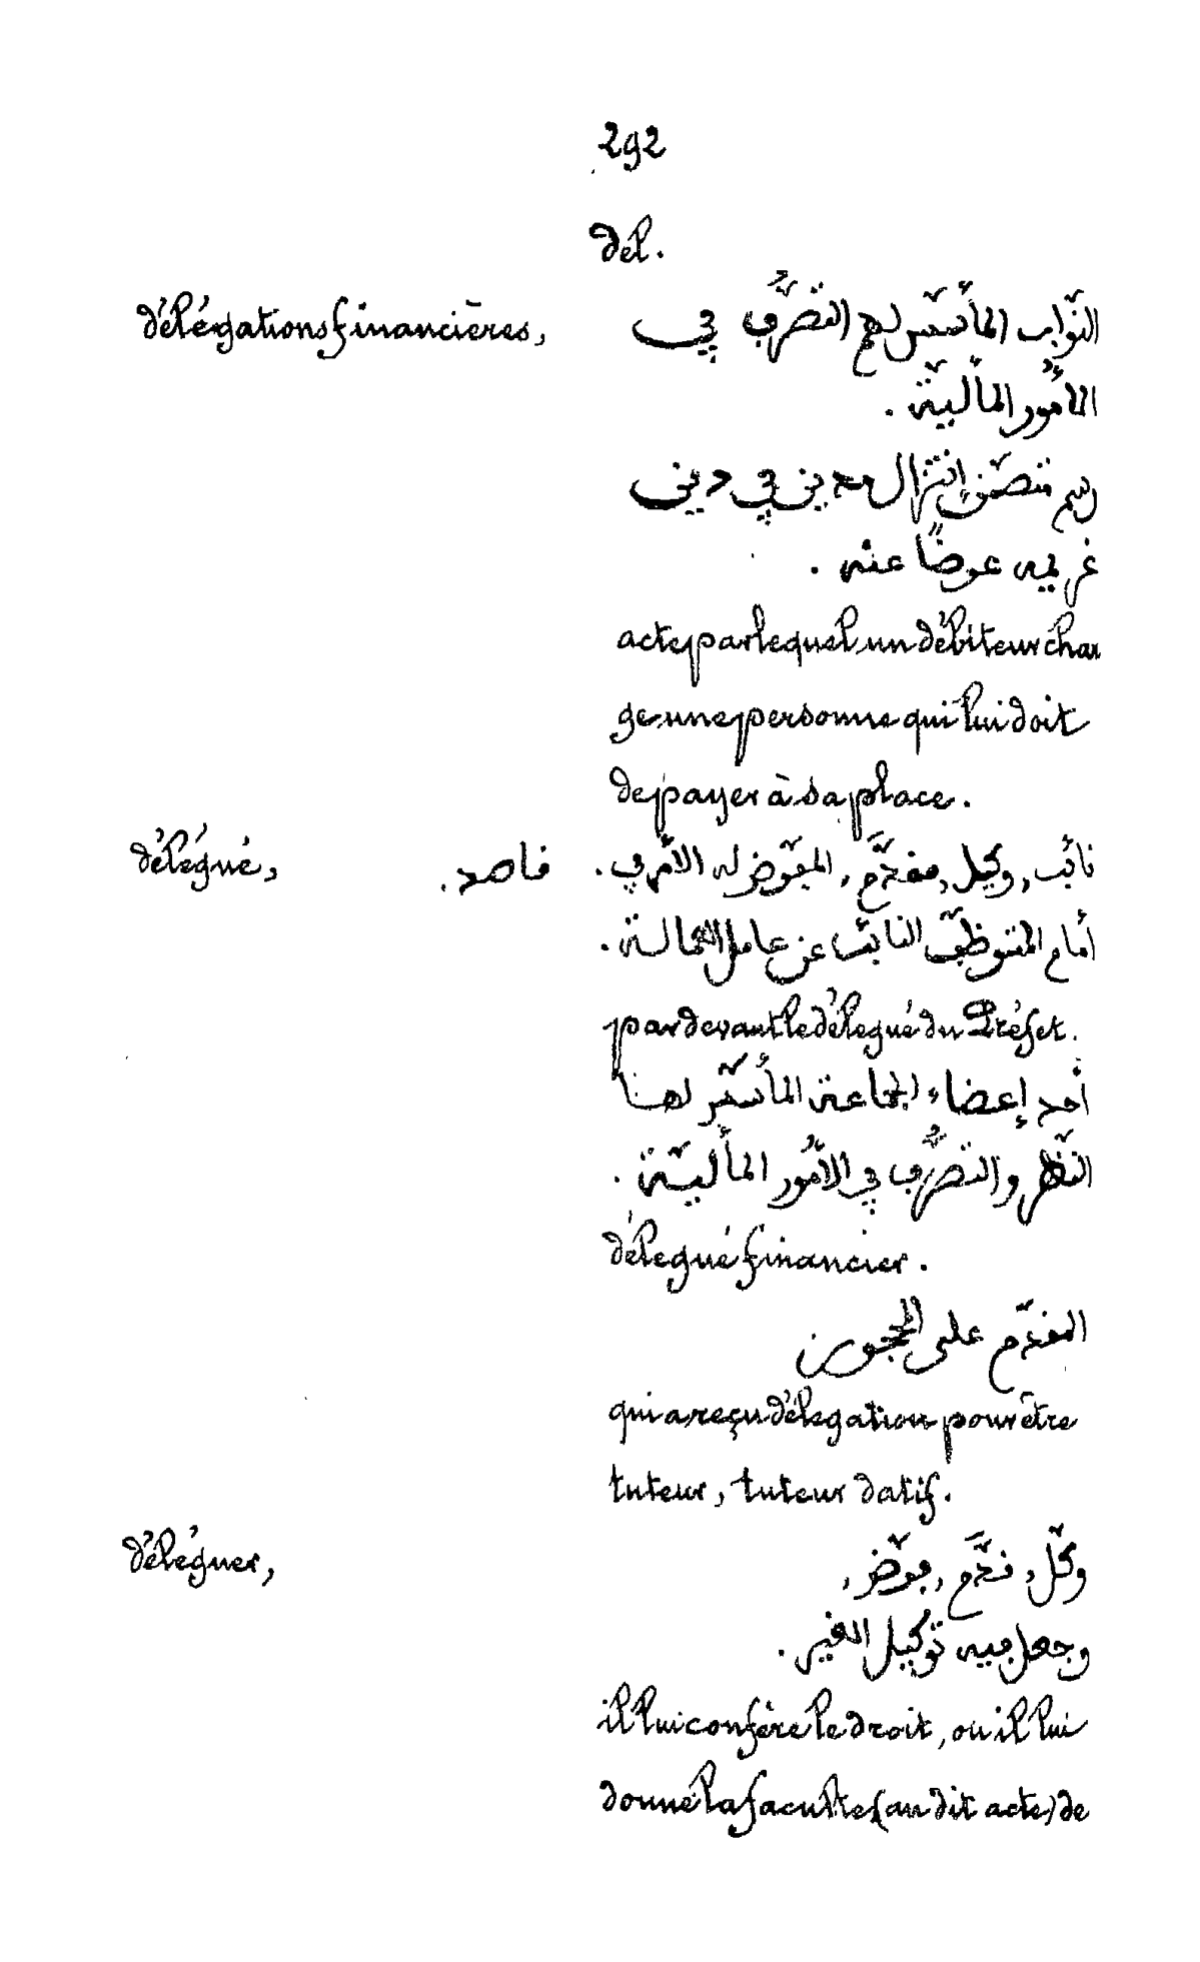 292
dél.
délégations financières, النّوّاب المأسّس لهم التصَرُّف في
الأمُور المأليّة .
رسم متضمّن إنتزال مدين في دين
غريمه عوضًا عنه .
acte par lequel un débiteur char
ge une personne qui lui doit
de payer à sa place.
délégué, نائب, وكيل, مقدَّم, المفوّض له الأمر في . قاصد .
أمام المتوظّف النائب عن عامل العمالة .
par devant le délégué du Préfet.
أحد إعضاء الجماعة المأسّس لها
النّظر والتصَرُّف في الأمُور المأليّة .
délegué financier.
المقدّم على المحجور
qui a reçu délégation pour être
tuteur, tuteur datif.
déléguer, وكّل, قدَّم, فوّض,
وجعل فيه توكيل الغير .
il lui confère le droit, ou il lui
donne la faculté (au dit acte) de